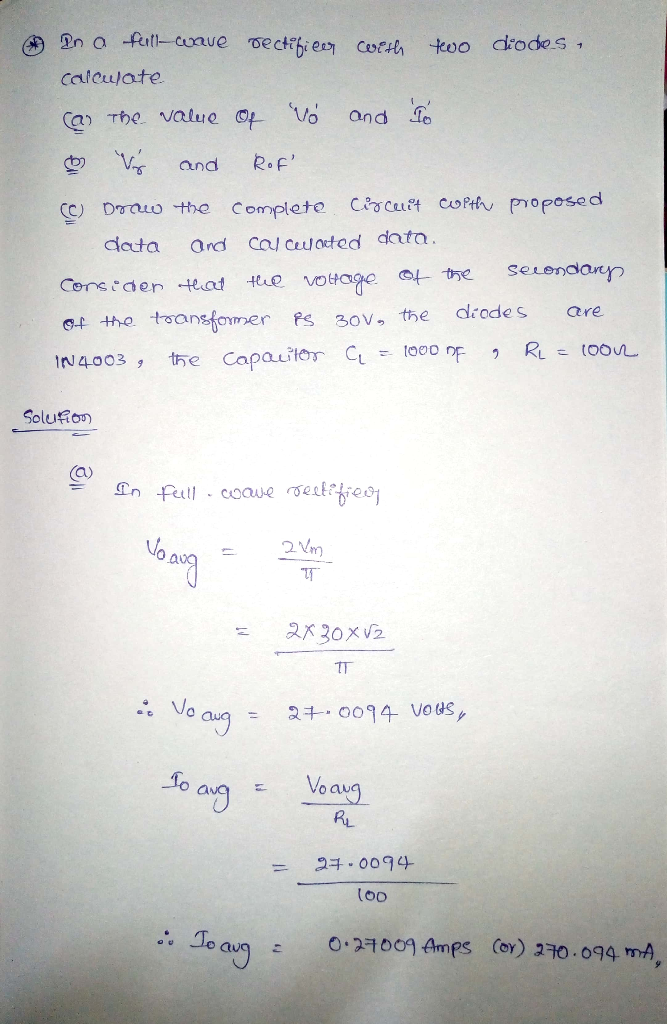 ⊛ In a full-wave rectifier with two diodes,
calculate
(a) The value of 'Vo' and 'Io'
(b) 'Vr' and R.F'
(c) Draw the complete circuit with proposed
data and calculated data.
Consider that the voltage of the secondary
of the transformer is 30V, the diodes are
1N4003, the capacitor CL = 1000 nF, RL = 100Ω
Solution
(a)
In full-wave rectifier
Vo avg = 2Vm / π
= 2×30×√2 / π
∴ Vo avg = 27.0094 volts,
Io avg = Vo avg / RL
= 27.0094 / 100
∴ Io avg = 0.27009 Amps (or) 270.094 mA,